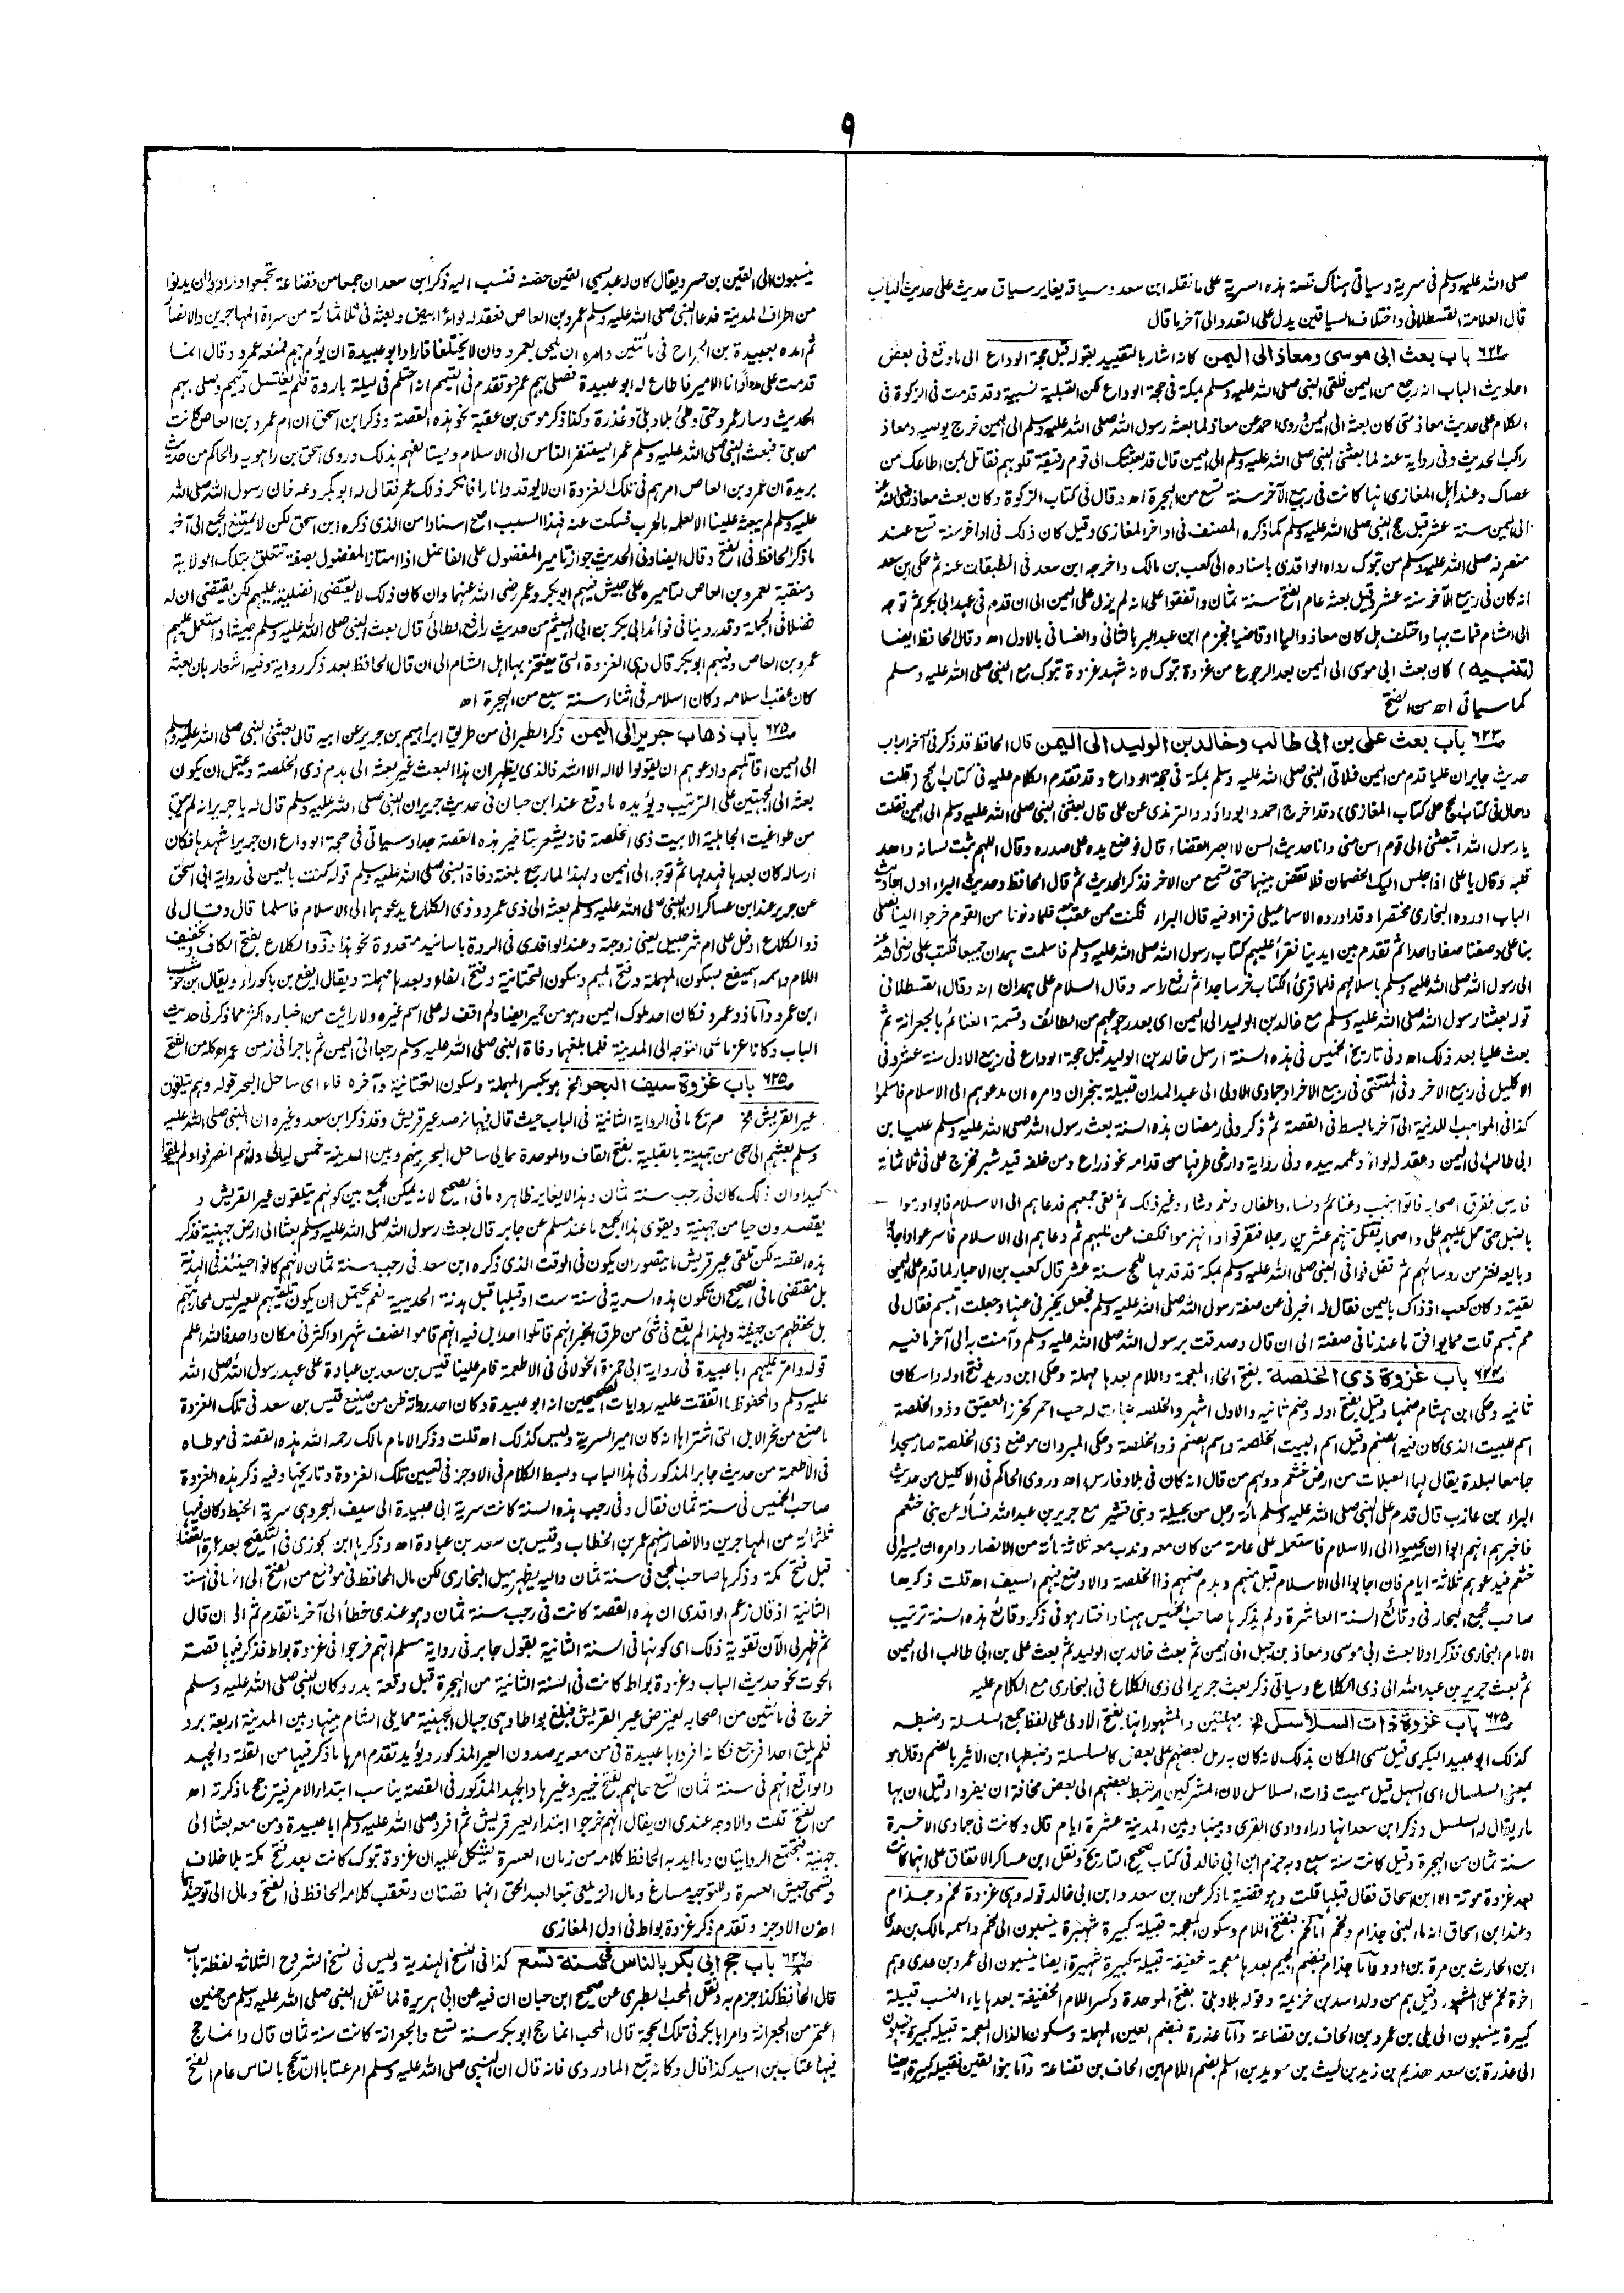 ٩
صلى الله عليه وسلم فى سرية وسياتى هناك قصة هذه السرية على ما نقله ابن سعد وسياقه يغاير سياق حديث على حديث الباب
قال العلامة القسطلانى واختلاف السياقين يدل على التعدد الى آخر ما قال
٦٢٢ باب بعث ابى موسى ومعاذ الى اليمن كانه اشار بالتقييد بقوله قبل حجة الوداع الى ما وقع فى بعض
احاديث الباب انه رجع من اليمن فلقى النبى صلى الله عليه وسلم بمكة فى حجة الوداع لكن القبلية نسبية وقد قدمت فى الزكوة فى
الكلام على حديث معاذ متى كان بعثه الى اليمن وروى احمد عن معاذ لما بعثه رسول الله صلى الله عليه وسلم الى اليمن خرج يوصيه ومعاذ
راكب الحديث وفى رواية عنه لما بعثنى النبى صلى الله عليه وسلم الى اليمن قال قد بعثتك الى قوم رقيقة قلوبهم فقاتل بمن اطاعك من
عصاك وعند اهل المغازى انها كانت فى ربيع الآخر سنة تسع من الهجرة اه وقال فى كتاب الزكوة وكان بعث معاذ رضى الله عنه
الى اليمن سنة عشر قبل حج النبى صلى الله عليه وسلم كما ذكره المصنف فى اواخر المغازى وقيل كان ذلك فى اواخر سنة تسع عند
منصرفه صلى الله عليه وسلم من تبوك رواه الواقدى باسناده الى كعب بن مالك واخرجه ابن سعد فى الطبقات عنه ثم حكى ابن سعد
انه كان فى ربيع الآخر سنة عشر وقيل بعثه عام الفتح سنة ثمان واتفقوا على انه لم يزل على اليمن الى ان قدم فى عهد ابى بكر ثم توجه
الى الشام فمات بها واختلف هل كان معاذ واليا او قاضيا فجزم ابن عبد البر بالثانى والغسانى بالاول اه وقال الحافظ ايضا
(تنبيه) كان بعث ابى موسى الى اليمن بعد الرجوع من غزوة تبوك لانه شهد غزوة تبوك مع النبى صلى الله عليه وسلم
كما سياتى اه من الفتح
٦٢٣ باب بعث على بن ابى طالب وخالد بن الوليد الى اليمن قال الحافظ قد ذكر فى آخر الباب
حديث جابر ان عليا قدم من اليمن فلاقى النبى صلى الله عليه وسلم بمكة فى حجة الوداع وقد تقدم الكلام عليه فى كتاب الحج (قلت
واحال فى كتاب الحج على كتاب المغازى) وقد اخرج احمد وابو داؤد والترمذى عن على قال بعثنى النبى صلى الله عليه وسلم الى اليمن فقلت
يا رسول الله تبعثنى الى قوم اسن منى وانا حديث السن لا ابصر القضاء قال فوضع يده على صدره وقال اللهم ثبت لسانه واهد
قلبه وقال يا على اذا جلس اليك الخصمان فلا تقض بينهما حتى تسمع من الاخر فذكر الحديث ثم قال الحافظ وحديث البراء اول احاديث
الباب اورده البخارى مختصرا وقد اورده الاسماعيلى فزاد فيه قال البراء فكنت ممن عقب معه فلما دنونا من القوم خرجوا الينا فصلى
بنا على وصفنا صفا واحدا ثم تقدم بين ايدينا فقرأ عليهم كتاب رسول الله صلى الله عليه وسلم فاسلمت همدان جميعا فكتب على رضى الله عنه
الى رسول الله صلى الله عليه وسلم باسلامهم فلما قرئ الكتاب خر ساجدا ثم رفع راسه وقال السلام على همدان اه وقال القسطلانى
قوله بعثنا رسول الله صلى الله عليه وسلم مع خالد بن الوليد الى اليمن اى بعد رجوعهم من الطائف وقسمة الغنائم بالجعرانة ثم
بعث عليا بعد ذلك اه وفى تاريخ الخميس فى هذه السنة ارسل خالد بن الوليد قبل حجة الوداع فى ربيع الاول سنة عشر وفى
الاكليل فى ربيع الاخر وفى المنتقى فى ربيع الاخر او جمادى الاولى الى عبد المدان قبيلة بنجران وامره ان يدعوهم الى الاسلام فاسلموا
كذا فى المواهب اللدنية الى آخر ما بسط فى القصة ثم ذكر وفى رمضان هذه السنة بعث رسول الله صلى الله عليه وسلم عليا بن
ابى طالب الى اليمن وعقد له لواء وعممه بيده وفى رواية وارخى طرفها من قدامه نحو ذراع ومن خلفه قيد شبر فخرج على فى ثلاثمائة
فارس ففرق اصحابه فاتوا بنهب وغنائم ونساء واطفال ونعم وشاء وغير ذلك ثم لقى جمعهم فدعاهم الى الاسلام فابوا ورموا
بالنبل حتى حمل عليهم على واصحابه فقتل منهم عشرين رجلا فتفرقوا وانهزموا فكف عن طلبهم ثم دعاهم الى الاسلام فاسرعوا واجابوا
وبايعه نفر من روسائهم ثم قفل فوافى النبى صلى الله عليه وسلم بمكة قد قدمها للحج سنة عشر قال كعب بن الاحبار لما قدم على اليمن
لقيته وكان كعب اذ ذاك باليمن فقال له اخبرنى عن صفة رسول الله صلى الله عليه وسلم فجعل يخبرنى عنها وجعلت اتبسم فقال لى
مم تبسم قلت مما يوافق ما عندنا فى صفته الى ان قال وصدقت برسول الله صلى الله عليه وسلم وآمنت به الى آخر ما فيه
٦٢٤ باب غزوة ذى الخلصة بفتح الخاء المعجمة واللام بعدها مهملة وحكى ابن دريد فتح اوله واسكان
ثانيه وحكى ابن هشام ضمها وقيل بفتح اوله وضم ثانيه والاول اشهر والخلصة نبات له حب احمر كخرز العقيق وذو الخلصة
اسم للبيت الذى كان فيه الصنم وقيل اسم البيت الخلصة واسم الصنم ذو الخلصة وحكى المبرد ان موضع ذى الخلصة صار مسجدا
جامعا لبلدة يقال لها العبلات من ارض خثعم ووهم من قال انه كان فى بلاد فارس اه وروى الحاكم فى الاكليل من حديث
البراء بن عازب قال قدم على النبى صلى الله عليه وسلم مائة رجل من بجيلة وبنى قشير مع جرير بن عبد الله فساله عن بنى خثعم
فاخبرهم انهم ابوا ان يجيبوا الى الاسلام فاستعمله على عامة من كان معه وندب معه ثلاثمائة من الانصار وامره ان يسير الى
خثعم فيدعوهم ثلاثة ايام فان اجابوا الى الاسلام قبل منهم وهدم صنمهم ذا الخلصة والا وضع فيهم السيف اه قلت ذكرها
صاحب مجمع البحار فى وقائع السنة العاشرة ولم يذكرها صاحب الخميس ههنا واختار هو فى ذكر وقائع هذه السنة ترتيب
الامام البخارى فذكر اولا بعث ابى موسى ومعاذ بن جبل الى اليمن ثم بعث خالد بن الوليد ثم بعث على بن ابى طالب الى اليمن
ثم بعث جرير بن عبد الله الى ذى الكلاع وسياتى ذكر بعث جرير الى ذى الكلاع فى البخارى مع الكلام عليه
٦٢٥ باب غزوة ذات السلاسل الخ بمهملتين والمشهور انها بفتح الاولى على لفظ جمع السلسلة وضبطه
كذلك ابو عبيد البكرى قيل سمى المكان بذلك لانه كان به رمل بعضهم على بعض كالسلسلة وضبطها ابن الاثير بالضم وقال هو
بمعنى السلسال اى السهل قيل سميت ذات السلاسل لان المشركين ارتبط بعضهم الى بعض مخافة ان يفروا وقيل ان بها
ماء يقال له السلسل وذكر ابن سعد انها وراء وادى القرى وبينها وبين المدينة عشرة ايام قال وكانت فى جمادى الآخرة
سنة ثمان من الهجرة وقيل كانت سنة سبع وبه جزم ابن ابى خالد فى كتاب صحيح التاريخ ونقل ابن عساكر الاتفاق على انها كانت
بعد غزوة موتة الا ابن اسحاق فقال قبلها قلت وهو قضية ما ذكر عن ابن سعد وابن ابى خالد قوله وهى غزوة لخم وجذام
وعند ابن اسحاق انه ماء لبنى جذام ولخم اما لخم فبفتح اللام وسكون المعجمة قبيلة كبيرة شهيرة ينسبون الى لخم واسمه مالك بن عدى
ابن الحارث بن مرة بن ادد واما جذام فبضم الجيم بعدها معجمة خفيفة قبيلة كبيرة شهيرة ايضا ينسبون الى عمرو بن عدى وهم
اخوة لخم على المشهور وقيل هم من ولد اسد بن خزيمة وقوله بلاد بلى بفتح الموحدة وكسر اللام الخفيفة بعدها ياء النسب قبيلة
كبيرة ينسبون الى بلى بن عمرو بن الحاف بن قضاعة واما عذرة فبضم العين المهملة وسكون الذال المعجمة قبيلة كبيرة ينسبون
الى عذرة بن سعد هذيم بن زيد بن ليث بن سويد بن اسلم بضم اللام ابن الحاف بن قضاعة واما بنو القين فقبيلة كبيرة ايضا
ينسبون الى القين بن جسر ويقال كان له عبد يسمى القين حضنه فنسب اليه ذكر ابن سعد ان جمعا من قضاعة تجمعوا وارادوا ان يدنوا
من اطراف المدينة فدعا النبى صلى الله عليه وسلم عمرو بن العاص فعقد له لواءً ابيض وبعثه فى ثلاثمائة من سراة المهاجرين والانصار
ثم امده بعبيدة بن الجراح فى مائتين وامره ان يلحق بعمرو وان لا يختلفا فاراد ابو عبيدة ان يؤم بهم فمنعه عمرو وقال انما
قدمت على مددا وانا الامير فاطاع له ابو عبيدة فصلى بهم عمرو تقدم فى التيمم انه احتلم فى ليلة باردة فلم يغتسل وتيمم وصلى بهم
الحديث وسار عمرو حتى وطئ بلاد بلى وعذرة وكذا ذكر موسى بن عقبة نحو هذه القصة وذكر ابن اسحق ان ام عمرو بن العاص كانت
من بلى فبعث النبى صلى الله عليه وسلم عمرا ليستنفر الناس الى الاسلام ويستالفهم بذلك وروى اسحق بن راهويه والحاكم من حديث
بريدة ان عمرو بن العاص امرهم فى تلك الغزوة ان لا يوقدوا نارا فانكر ذلك عمر فقال له ابو بكر دعه فان رسول الله صلى الله
عليه وسلم لم يبعثه علينا الا لعلمه بالحرب فسكت عنه فهذا السبب اصح اسنادا من الذى ذكره ابن اسحق لكن لا يمتنع الجمع الى آخر
ما ذكر الحافظ فى الفتح وقال ايضا وفى الحديث جواز تامير المفضول على الفاضل اذا امتاز المفضول بصفة تتعلق بتلك الولاية
ومنقبة لعمرو بن العاص لتاميره على جيش فيهم ابو بكر وعمر رضى الله عنهما وان كان ذلك لا يقتضى افضليته عليهم لكن يقتضى ان له
فضلا فى الجملة وقد روينا فى فوائد ابى بكر بن ابى الهيثم من حديث رافع الطائى قال بعث النبى صلى الله عليه وسلم جيشا واستعمل عليهم
عمرو بن العاص وفيهم ابو بكر قال وهى الغزوة التى يفتخر بها اهل الشام الى ان قال الحافظ بعد ذكر رواية وفيه اشعار بان بعثه
كان عقب اسلامه وكان اسلامه فى اثناء سنة سبع من الهجرة اه
٦٢٥ باب ذهاب جرير الى اليمن ذكر الطبرانى من طريق ابراهيم بن جرير عن ابيه قال بعثنى النبى صلى الله عليه وسلم
الى اليمن اقاتلهم وادعوهم ان يقولوا لا اله الا الله فالذى يظهر ان هذا البعث غير بعثه الى هدم ذى الخلصة ويحتمل ان يكون
بعثه الى الجهتين على الترتيب ويؤيده ما وقع عند ابن حبان فى حديث جرير ان النبى صلى الله عليه وسلم قال له يا جرير انه لم يبق
من طواغيت الجاهلية الا بيت ذى الخلصة فانه يشعر بتاخير هذه القصة جدا وسياتى فى حجة الوداع ان جريرا شهدها فكان
ارساله كان بعدها فهدمها ثم توجه الى اليمن ولهذا لما رجع بلغته وفاة النبى صلى الله عليه وسلم قوله كنت باليمن فى رواية ابى اسحق
عن جرير عند ابن عساكر ان النبى صلى الله عليه وسلم بعثه الى ذى عمرو وذى الكلاع يدعوهما الى الاسلام فاسلما قال وقال لى
ذو الكلاع ادخل على ام شرحبيل يعنى زوجته وعند الواقدى فى الردة باسانيد متعددة نحو هذا وذو الكلاع بفتح الكاف وتخفيف
اللام واسمه اسميفع بسكون المهملة وفتح الميم وسكون التحتانية وفتح الفاء وبعدها مهملة ويقال ايفع بن باكوراء ويقال ابن حوشب
ابن عمرو واما ذو عمرو فكان احد ملوك اليمن وهو من حمير ايضا ولم اقف له على اسم غيره ولا رايت من اخباره اكثر مما ذكر فى حديث
الباب وكانا عزما على التوجه الى المدينة فلما بلغهما وفاة النبى صلى الله عليه وسلم رجعا الى اليمن ثم هاجرا فى زمن عمر اه كله من الفتح
٦٢٥ باب غزوة سيف البحر الخ هو بكسر المهملة وسكون التحتانية وآخره فاء اى ساحل البحر قوله وهم يتلقون
عير القريش الخ صريح ما فى الرواية الثانية فى الباب حيث قال فيها نرصد عير قريش وقد ذكر ابن سعد وغيره ان النبى صلى الله عليه
وسلم بعثهم الى حى من جهينة بالقبلية بفتح القاف والموحدة مما يلى ساحل البحر بينهم وبين المدينة خمس ليال وانهم انصرفوا ولم يلقوا
كيدا وان ذلك كان فى رجب سنة ثمان وهذا لا يغاير ظاهره ما فى الصحيح لانه يمكن الجمع بين كونهم يتلقون عير القريش و
يقصدون حيا من جهينة ويقوى هذا الجمع ما عند مسلم عن جابر قال بعث رسول الله صلى الله عليه وسلم بعثا الى ارض جهينة فذكر
هذه القصة لكن تلقى عير قريش ما يتصور ان يكون فى الوقت الذى ذكره ابن سعد فى رجب سنة ثمان لانهم كانوا حينئذ فى الهدنة
بل مقتضى ما فى الصحيح ان تكون هذه السرية فى سنة ست او قبلها قبل هدنة الحديبية نعم يحتمل ان يكون تلقيهم للعير ليس لمحاربتهم
بل لحفظهم من جهينة ولهذا لم يقع فى شئ من طرق الخبر انهم قاتلوا احدا بل فيه انهم قاموا نصف شهر او اكثر فى مكان واحد فالله اعلم
قوله وامر عليهم ابا عبيدة فى رواية ابى حمزة الخولانى فى الاطعمة فامر علينا قيس بن سعد بن عبادة على عهد رسول الله صلى الله
عليه وسلم والمحفوظ ما اتفقت عليه روايات الصحيحين انه ابو عبيدة وكان احد رواته ظن من صنيع قيس بن سعد فى تلك الغزوة
ما صنع من نحر الابل التى اشتراها انه كان امير السرية وليس كذلك اه قلت وذكر الامام مالك رحمه الله هذه القصة فى موطاه
فى الاطعمة من حديث جابر المذكور فى هذا الباب وبسط الكلام فى الاوجز فى تعيين تلك الغزوة وتاريخها وفيه ذكر هذه الغزوة
صاحب الخميس فى سنة ثمان فقال وفى رجب هذه السنة كانت سرية ابى عبيدة الى سيف البحر وهى سرية الخبط وكان فيها
ثلثمائة من المهاجرين والانصار منهم عمر بن الخطاب وقيس بن سعد بن عبادة اه وذكرها ابن الجوزى فى التلقيح بعد عمرة القضاء
قبل فتح مكة وذكرها صاحب المجمع فى سنة ثمان واليه يظهر ميل البخارى لكن مال الحافظ فى مواضع من الفتح الى انها فى السنة
الثانية اذ قال زعم الواقدى ان هذه القصة كانت فى رجب سنة ثمان وهو عندى خطأ الى آخر ما تقدم ثم الى ان قال
ثم ظهر لى الآن تقوية ذلك اى كونها فى السنة الثانية بقول جابر فى رواية مسلم انهم خرجوا فى غزوة بواط فذكر فيها قصة
الحوت نحو حديث الباب وغزوة بواط كانت فى السنة الثانية من الهجرة قبل وقعة بدر وكان النبى صلى الله عليه وسلم
خرج فى مائتين من اصحابه يعترض عير القريش فبلغ بواطا وهى جبال لجهينة مما يلى الشام بينها وبين المدينة اربعة برد
فلم يلق احدا فرجع فكانه افرد ابا عبيدة فى من معه يرصدون العير المذكور ويؤيد تقدم امرها ما ذكر فيها من القلة والجهد
والواقع انهم فى سنة ثمان اتسع حالهم بفتح خيبر وغيرها والجهد المذكور فى القصة يناسب ابتداء الامر فيترجح ما ذكرته اه
من الفتح قلت والاوجه عندى ان يقال انهم خرجوا ابتداء لعير قريش ثم افرد صلى الله عليه وسلم ابا عبيدة ومن معه بعثا الى
جهينة فتجتمع الروايتان وما ايد به الحافظ كلامه من زمان العسرة يشكل عليه ان غزوة تبوك كانت بعد فتح مكة بلا خلاف
وتسمى جيش العسرة وللتوجيه مساغ ومال الزيلعى تبعا لعبد الحق انهما قصتان وتعقب كلامه الحافظ فى الفتح ومال الى توحيدهما
اه من الاوجز وتقدم ذكر غزوة بواط فى اول المغازى
٦٢٦ باب حج ابى بكر بالناس فى سنة تسع كذا فى النسخ الهندية وليس فى نسخ الشروح الثلاثة لفظة باب
قال الحافظ كذا جزم به ونقل المحب الطبرى عن صحيح ابن حبان ان فيه عن ابى هريرة لما قفل النبى صلى الله عليه وسلم من حنين
اعتمر من الجعرانة وامر ابا بكر فى تلك الحجة قال المحب انما حج ابو بكر سنة تسع والجعرانة كانت سنة ثمان قال وانما حج
فيها عتاب بن اسيد كذا قال وكانه تبع الماوردى فانه قال ان النبى صلى الله عليه وسلم امر عتابا ان يحج بالناس عام الفتح